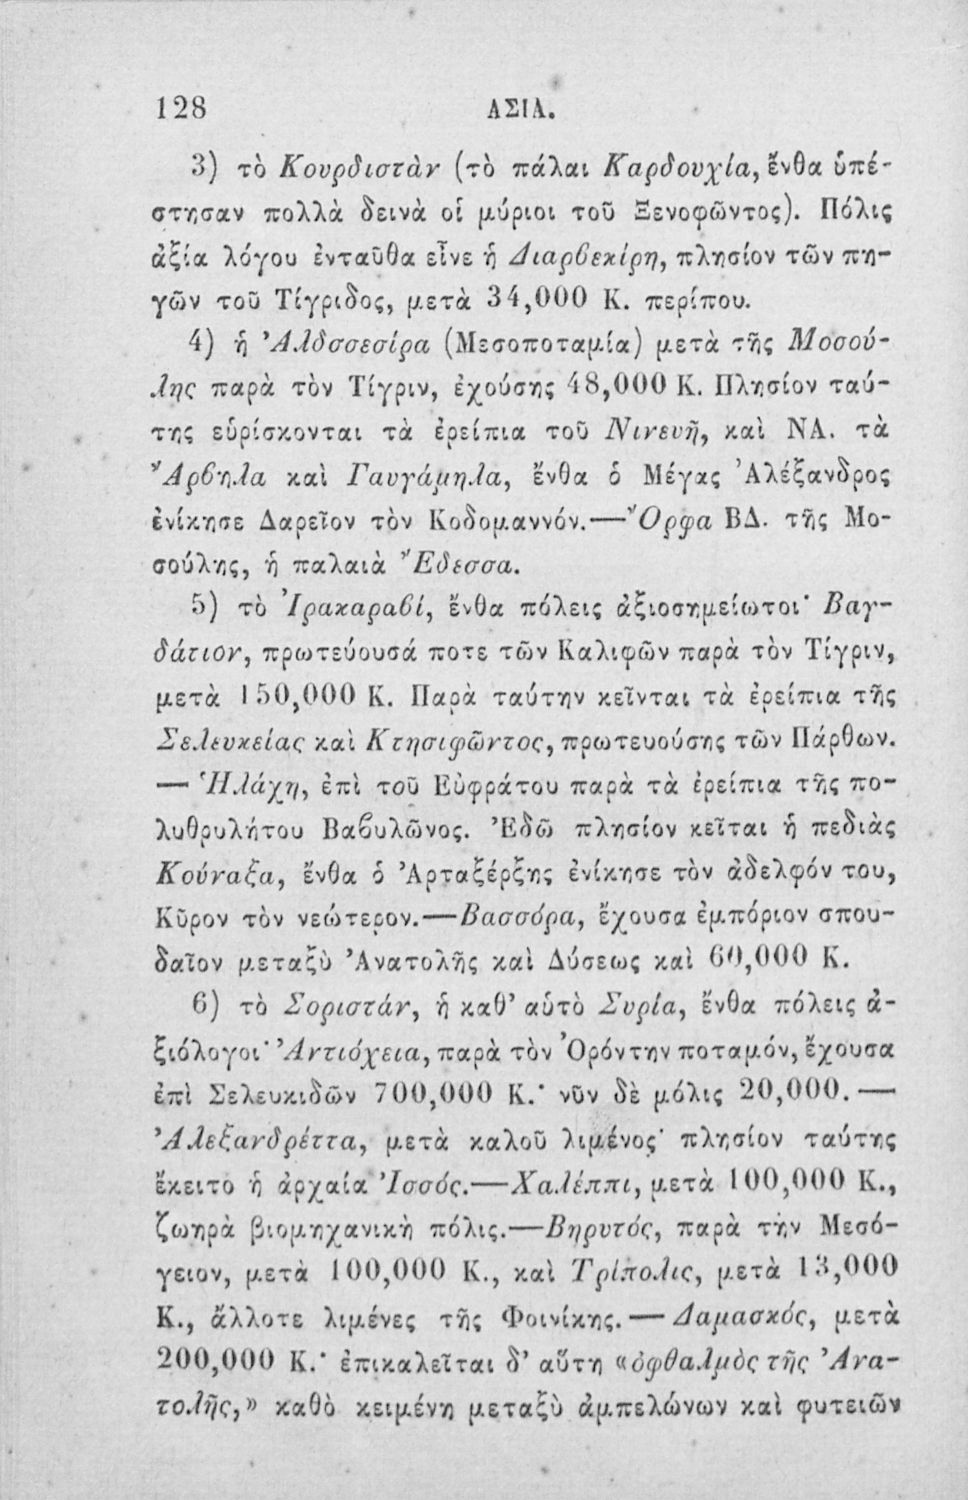 128 ΑΣΙΑ.
3) τὸ Κουρδιστὰν (τὸ πάλαι Καρδουχία, ἔνθα ὑπέ-
στησαν πολλὰ δεινὰ οἱ μύριοι τοῦ Ξενοφῶντος). Πόλις
ἀξία λόγου ἐνταῦθα εἶνε ἡ Διαρβεκίρη, πλησίον τῶν πη-
γῶν τοῦ Τίγριδος, μετὰ 34,000 Κ. περίπου.
4) ἡ Ἀλδσσεσίρα (Μεσοποταμία) μετὰ τῆς Μοσού-
λης παρὰ τὸν Τίγριν, ἐχούσης 48,000 Κ. Πλησίον ταύ-
της εὑρίσκονται τὰ ἐρείπια τοῦ Νινευῆ, καὶ ΝΑ. τὰ
Ἄρβηλα καὶ Γαυγάμηλα, ἔνθα ὁ Μέγας Ἀλέξανδρος
ἐνίκησε Δαρεῖον τὸν Κοδομαννόν.—Ὄρφα ΒΔ. τῆς Μο-
σούλης, ἡ παλαιὰ Ἔδεσσα.
5) τὸ Ἰρακαραβί, ἔνθα πόλεις ἀξιοσημείωτοι· Βαγ-
δάτιον, πρωτεύουσά ποτε τῶν Καλιφῶν παρὰ τὸν Τίγριν,
μετὰ 150,000 Κ. Παρὰ ταύτην κεῖνται τὰ ἐρείπια τῆς
Σελευκείας καὶ Κτησιφῶντος, πρωτευούσης τῶν Πάρθων.
— Ἡλάχη, ἐπὶ τοῦ Εὐφράτου παρὰ τὰ ἐρείπια τῆς πο-
λυθρυλήτου Βαβυλῶνος. Ἐδῶ πλησίον κεῖται ἡ πεδιὰς
Κούναξα, ἔνθα ὁ Ἀρταξέρξης ἐνίκησε τὸν ἀδελφόν του,
Κῦρον τὸν νεώτερον.—Βασσόρα, ἔχουσα ἐμπόριον σπου-
δαῖον μεταξὺ Ἀνατολῆς καὶ Δύσεως καὶ 60,000 Κ.
6) τὸ Σοριστάν, ἡ καθ' αὑτὸ Συρία, ἔνθα πόλεις ἀ-
ξιόλογοι· Ἀντιόχεια, παρὰ τὸν Ὀρόντην ποταμόν, ἔχουσα
ἐπὶ Σελευκιδῶν 700,000 Κ.· νῦν δὲ μόλις 20,000.—
Ἀλεξανδρέττα, μετὰ καλοῦ λιμένος· πλησίον ταύτης
ἔκειτο ἡ ἀρχαία Ἰσσός.—Χαλέππι, μετὰ 100,000 Κ.,
ζωηρὰ βιομηχανικὴ πόλις.—Βηρυτός, παρὰ τὴν Μεσό-
γειον, μετὰ 100,000 Κ., καὶ Τρίπολις, μετὰ 13,000
Κ., ἄλλοτε λιμένες τῆς Φοινίκης.—Δαμασκός, μετὰ
200,000 Κ.· ἐπικαλεῖται δ' αὕτη «ὀφθαλμὸς τῆς Ἀνα-
τολῆς,» καθὸ κειμένη μεταξὺ ἀμπελώνων καὶ φυτειῶν